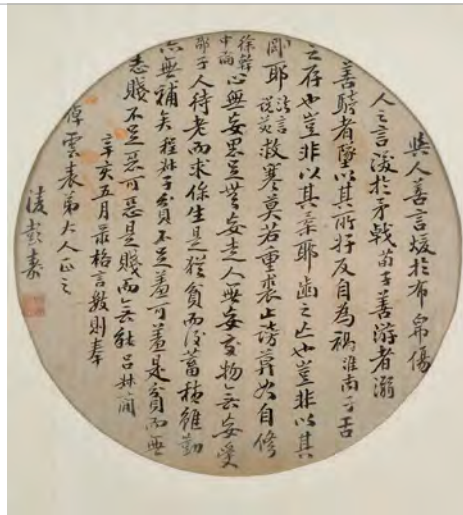 與人善言煖於布帛傷
人之言深於矛戟荀子善游者溺
善騎者墜以其所好反自為禍淮南子舌
之存也豈非以其柔耶齒之亡也豈非以其
剛耶說苑救寒莫若重裘止謗莫如自修
徐幹中論心無妄思足無妄走人無妄交物無妄受
邵子人待老而求保生是猶貧而後蓄積雖勤
亦無補矣子貧不足羞可羞是貧而無
志賤不足惡可惡是賤而無能呂叔簡
辛亥五月录格言數則奉
雲表弟大人正之
彭